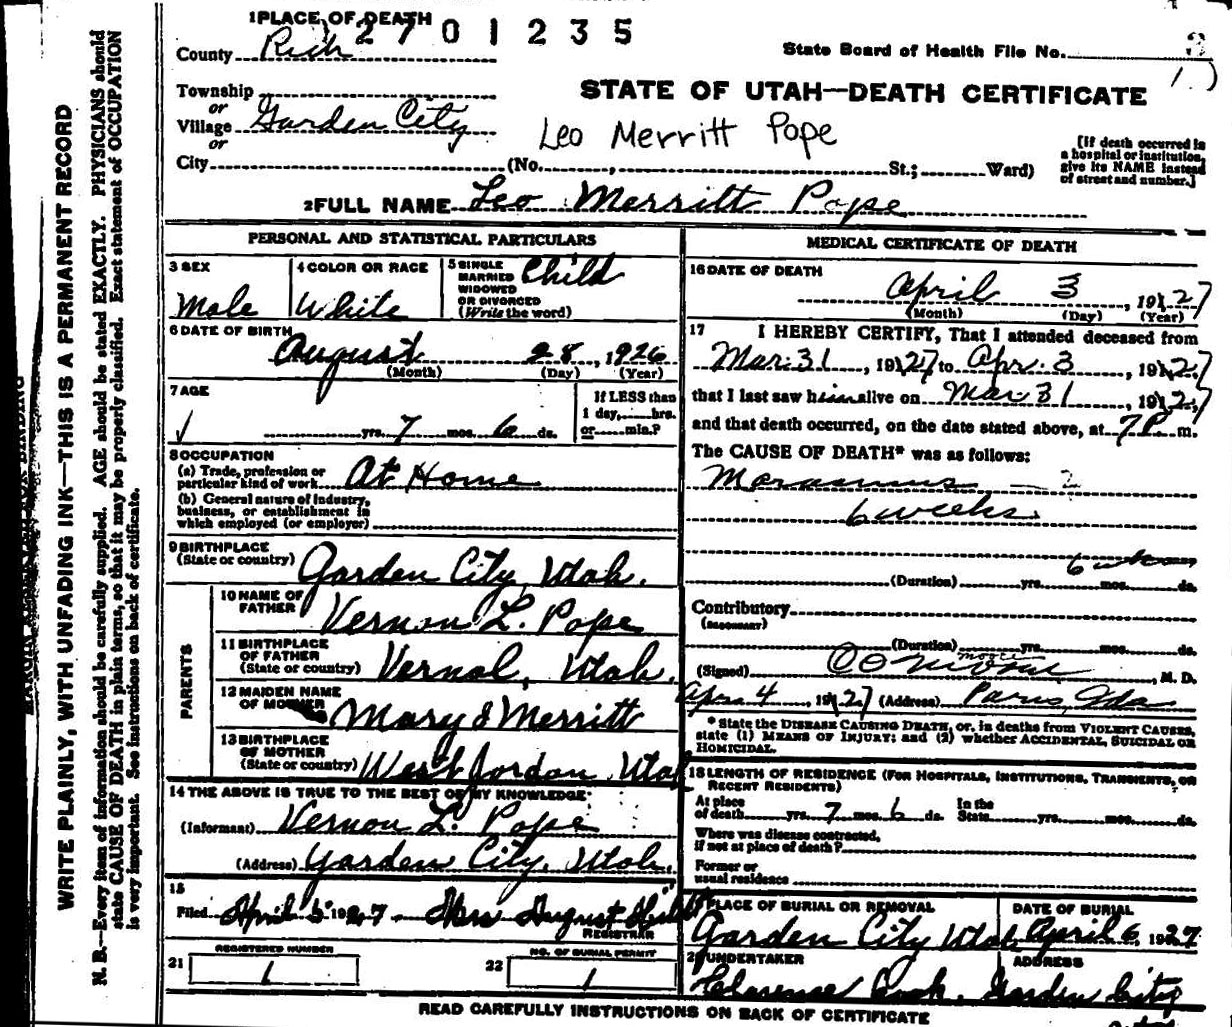 1 PLACE OF DEATH
2 7 0 1 2 3 5
County Rich
State Board of Health File No.
STATE OF UTAH—DEATH CERTIFICATE
Township
or
Village Garden City
or
Leo Merritt Pope
City (No. , St.; Ward)
[If death occurred in
a hospital or institution,
give its NAME instead
of street and number.]
2 FULL NAME Leo Merritt Pope
PERSONAL AND STATISTICAL PARTICULARS
3 SEX
Male
4 COLOR OR RACE
White
5 SINGLE
MARRIED
WIDOWED
OR DIVORCED
(Write the word)
Child
6 DATE OF BIRTH
August 28, 1926
(Month) (Day) (Year)
7 AGE
yrs. 7 mos. 6 ds.
If LESS than
1 day, hrs.
or min.?
8 OCCUPATION
(a) Trade, profession or
particular kind of work At Home
(b) General nature of industry,
business, or establishment in
which employed (or employer)
9 BIRTHPLACE
(State or country) Garden City, Utah.
PARENTS
10 NAME OF
FATHER Vernon L. Pope
11 BIRTHPLACE
OF FATHER
(State or country) Vernal, Utah.
12 MAIDEN NAME
OF MOTHER Mary I Merritt
13 BIRTHPLACE
OF MOTHER
(State or country) West Jordan, Utah
14 THE ABOVE IS TRUE TO THE BEST OF MY KNOWLEDGE
(Informant) Vernon L. Pope
(Address) Garden City, Utah.
15
Filed April 5 1927 Mrs August
REGISTRAR
REGISTERED NUMBER
21 1
NO. OF BURIAL PERMIT
22 1
MEDICAL CERTIFICATE OF DEATH
16 DATE OF DEATH
April 3, 1927
(Month) (Day) (Year)
17 I HEREBY CERTIFY, That I attended deceased from
Mar. 31, 1927 to Apr. 3, 1927
that I last saw him alive on Mar 31, 1927,
and that death occurred, on the date stated above, at 7 P. m.
The CAUSE OF DEATH* was as follows:
Marasmus — 2
6 weeks.
(Duration) yrs. mos. ds.
Contributory
(SECONDARY)
(Duration) yrs. mos. ds.
(Signed) , M. D.
Apr. 4 1927 (Address) Paris, Ida
* State the DISEASE CAUSING DEATH, or, in deaths from VIOLENT CAUSES,
state (1) MEANS OF INJURY; and (2) whether ACCIDENTAL, SUICIDAL OR
HOMICIDAL.
18 LENGTH OF RESIDENCE (FOR HOSPITALS, INSTITUTIONS, TRANSIENTS, OR
RECENT RESIDENTS)
At place
of death yrs. 7 mos. 6 ds.
In the
State yrs. mos. ds.
Where was disease contracted,
if not at place of death?
Former or
usual residence
PLACE OF BURIAL OR REMOVAL
Garden City Utah
DATE OF BURIAL
April 6, 1927
UNDERTAKER
Clarence Cook.
ADDRESS
Garden City
READ CAREFULLY INSTRUCTIONS ON BACK OF CERTIFICATE
WRITE PLAINLY, WITH UNFADING INK—THIS IS A PERMANENT RECORD
N. B.—Every item of information should be carefully supplied. AGE should be stated EXACTLY. PHYSICIANS should
state CAUSE OF DEATH in plain terms, so that it may be properly classified. Exact statement of OCCUPATION
is very important. See instructions on back of certificate.